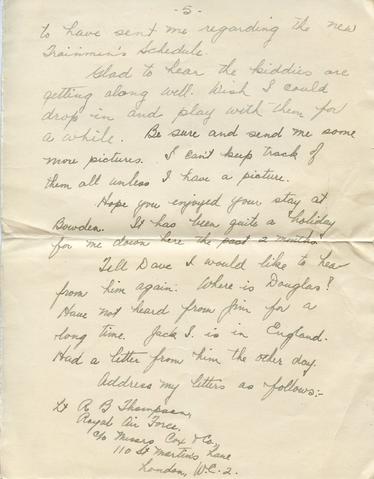 - 5 -
to have sent me regarding the new
Trainmen's Schedule.
Glad to hear the kiddies are
getting along well. Wish I could
drop in and play with them for
a while. Be sure and send me some
more pictures. I can't keep track of
them all unless I have a picture.
Hope you enjoyed your stay at
Bowden. It has been quite a "holiday
for me down here the past 2 months"
Tell Dave I would like to hear
from him again. Where is Douglas?
Have not heard from Jim for a
long time. Jack S. is in England.
Had a letter from him the other day.
Address my letters as follows:-
Lt R B Thompson,
Royal Air Force,
c/o Messrs Cox & Co.,
110 St Martins Lane
London, W.C. 2.